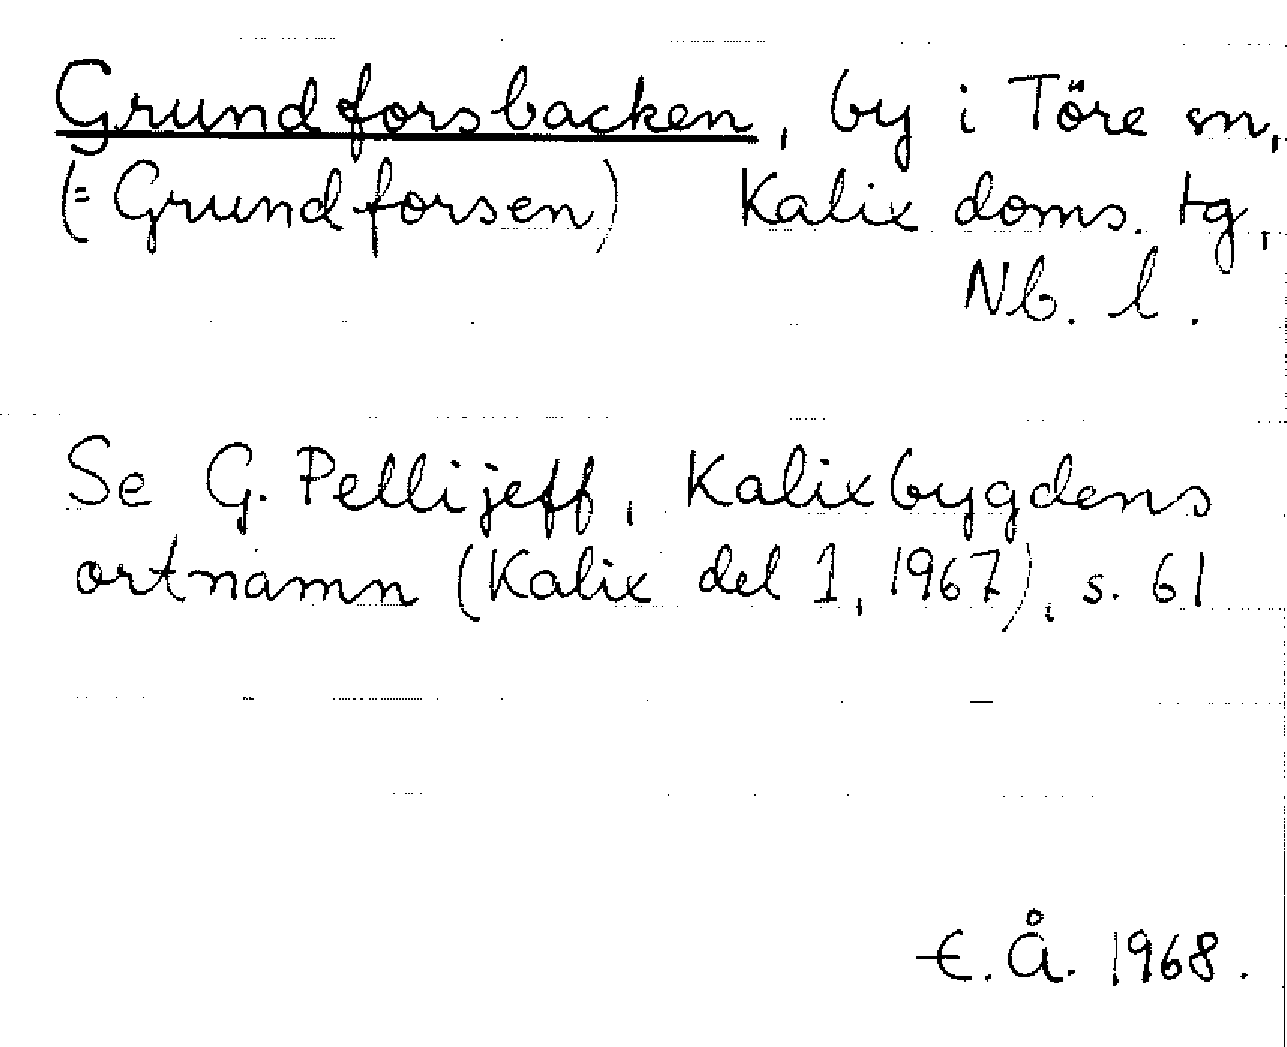 Grundforsbacken, by i Töre sn,
(= Grundforsen) Kalix doms. tg,
Nb. l.
Se G. Pellijeff, Kalixbygdens
ortnamn (Kalix del 1, 1967), s. 61
E. Å. 1968.